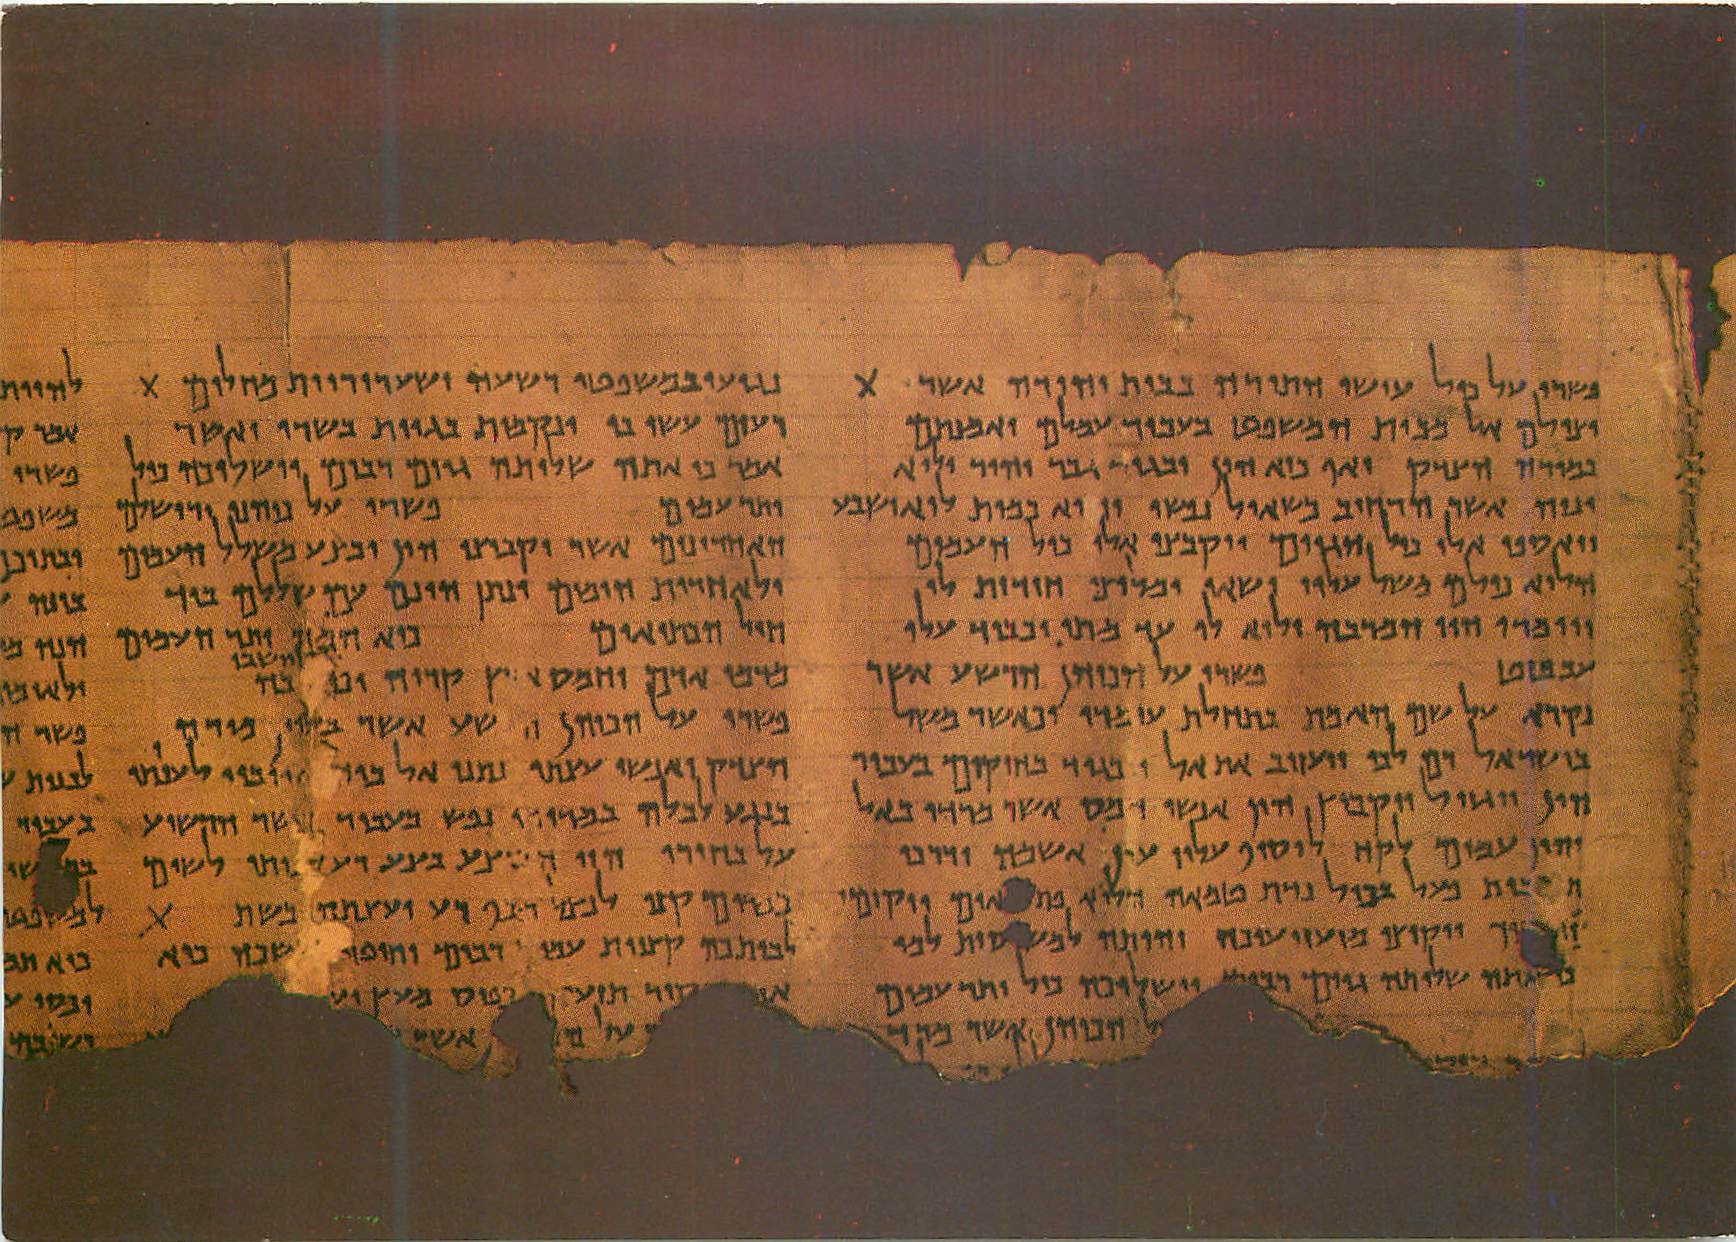 פשרו על כול עושי התורה בבית יהודה אשר X
יצילם אל מבית המשפט בעבור עמלם ואמנתם
במורה הצדק ואף כיא הון יבגוד גבר יהיר ולוא
ינוה אשר הרחיב כשאול נפשו והוא כמות לוא ישבע
ויאספו אלו כול הגוים ויקבצו אלו כול העמים
הלוא כולם משל עליו ישאו ומליצי חידות לו
ויומרו הוי המרבה ולוא לו עד מתי יכביד עלו
עבטט פשרו על הכוהן הרשע אשר
נקרא על שם האמת בתחלת עומדו וכאשר משל
בישראל רם לבו ויעזוב את אל ויבגוד בחוקים בעבור
הון ויגזול ויקבוץ הון אנשי חמס אשר מרדו באל
והון עמים לקח לוסיף עליו עוון אשמה ודרכי
בכול נדת טמאה הלוא ויקומו
ויקיצו מזעזיעיכה והייתה למו
כי אתה שלותה גוים רבים וישלוכה כול יתר עמים
הכוהן אשר מרד
נגועו במשפטי רשעה ושערוריות מחלים X
רעים עשו בו ונקמות בגוית בשרו ואשר
אמר כי אתה שלותה גוים רבים וישלוכה כול
יתר עמים פשרו על כוהני ירושלם
האחרונים אשר יקבוצו הון ובצע משלל העמים
ולאחרית הימים ינתן הונם עם שללם ביד
חיל הכתיאים כיא המה יתר העמים
יושבי
מדמי אדם וחמס ארץ קריה וכול בה
פשרו על הכוהן הרשע אשר מורה
הצדק ואנשי עצתו נתנו אל ביד אויביו לענותו
בנגע לכלה במרירי נפש בעבור אשר הרשיע
על בחירו הוי הבוצע בצע רע לביתו לשום
במרום קנו לנצל מכף רע יעצתה בשת X
לביתכה קצוות עמים רבים וחוטי נפשכה כיא
אבן מקיר תזעק וכפיס מעץ
להיות
אמר
פשרו
הנה
פשר
לבנות
בעבור
כיא